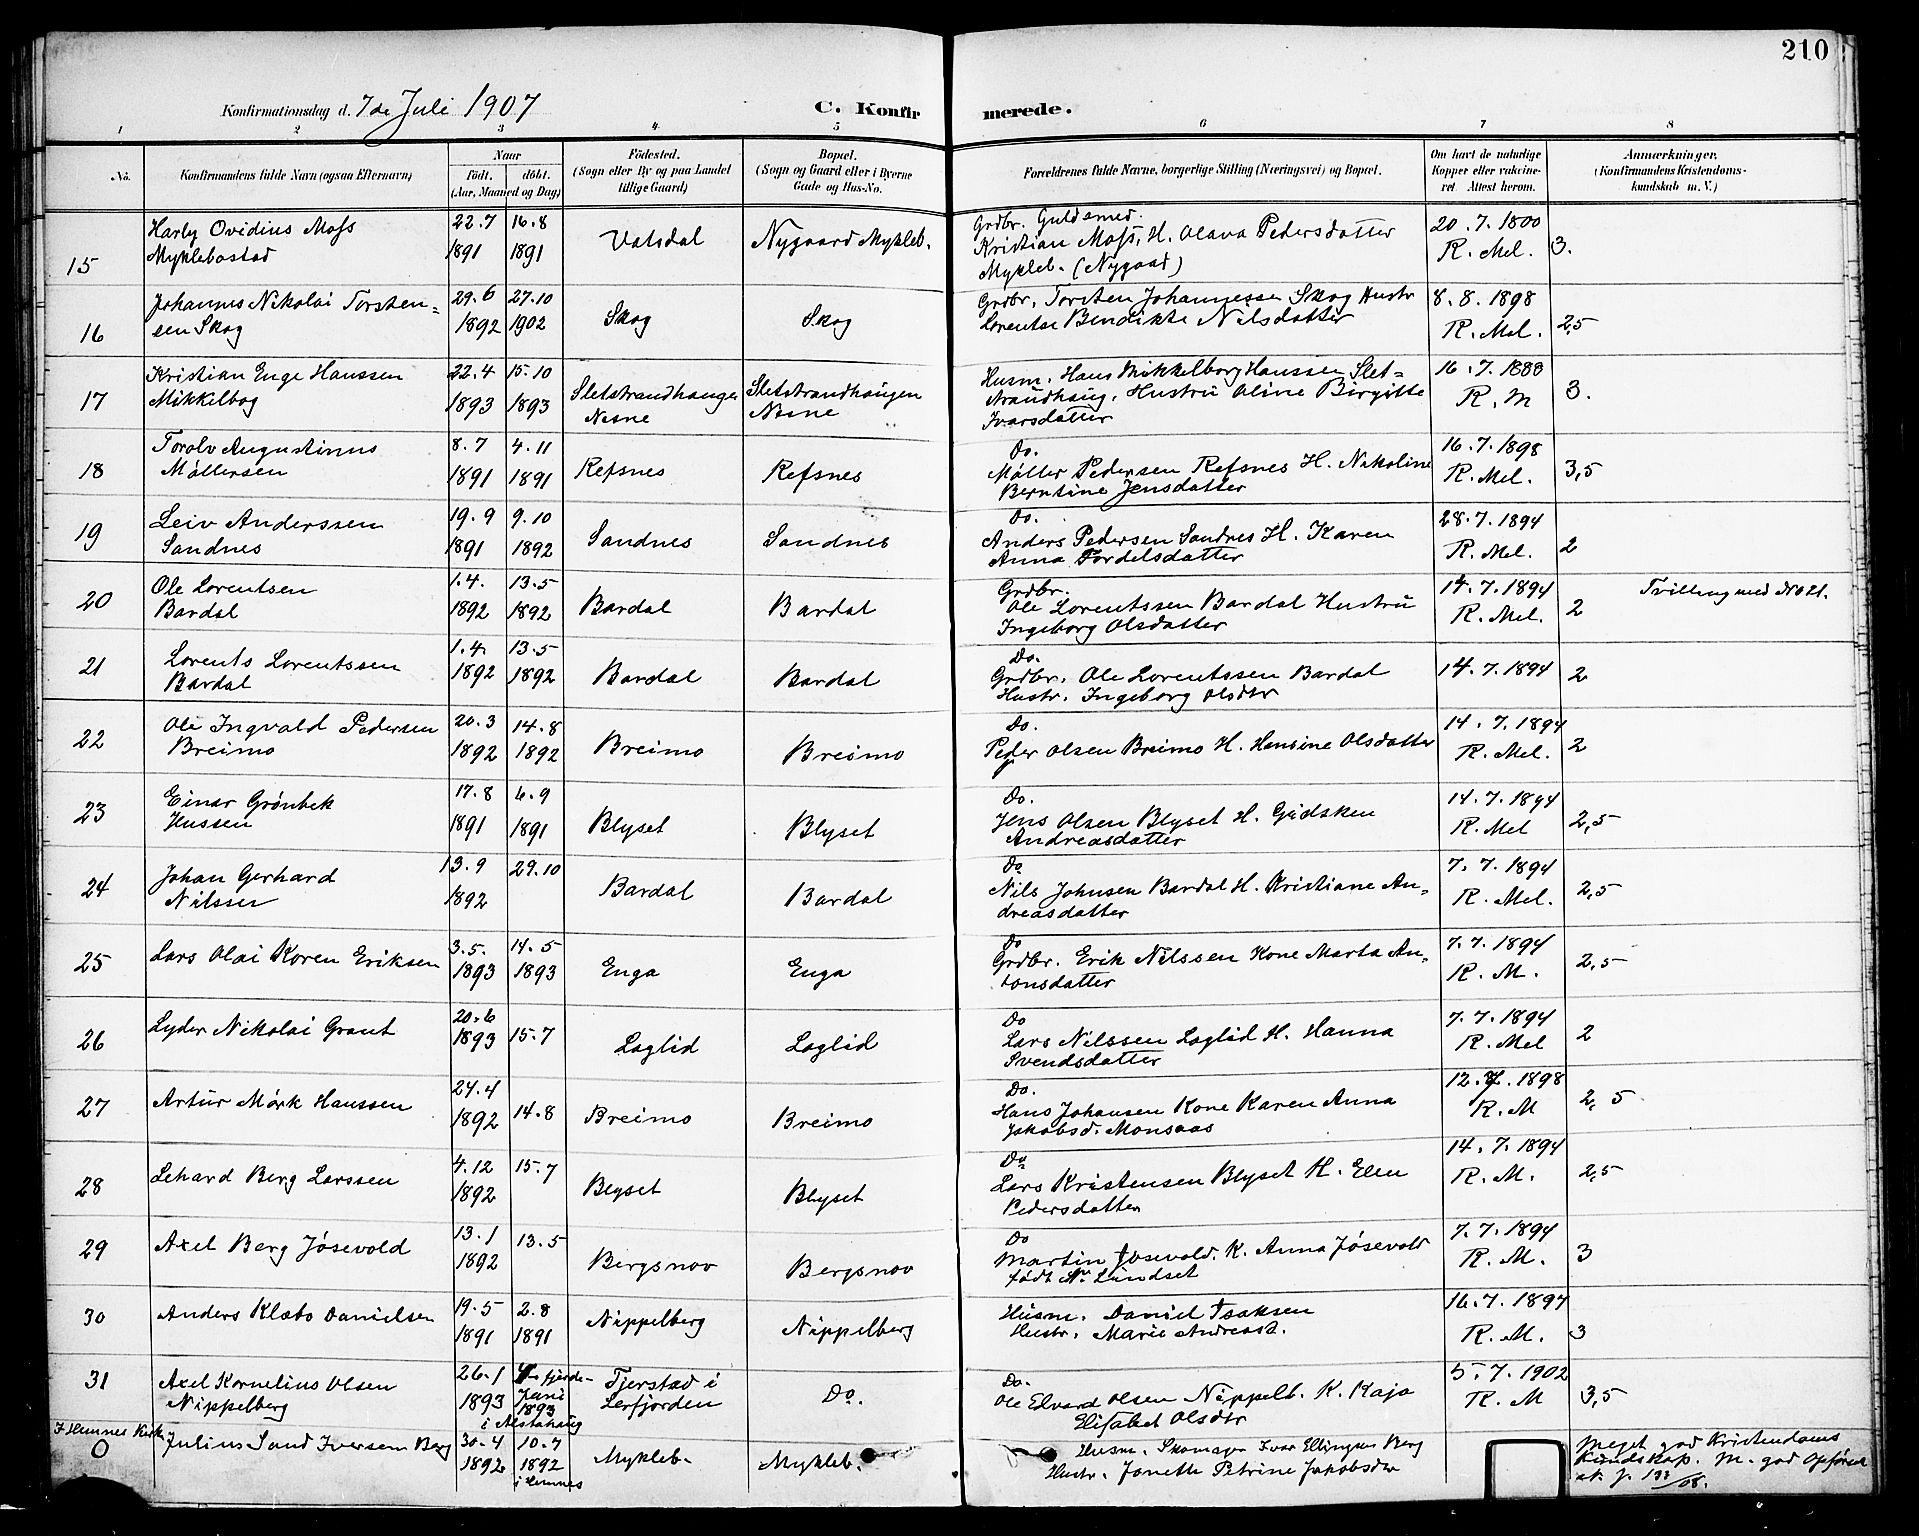 210
Konfirmationsdag d. 7de Juli 1907
C. Konfirmerede.
1 2 3 4 5 6 7 8
No.
Konfirmandens fulde Navn (ogsaa Efternavn)
Naar
født. døbt.
(Aar, Maaned og Dag)
Fødested.
(Sogn eller By og paa Landet
tillige Gaard)
Bopæl.
(Sogn og Gaard eller i Byerne
Gade og Hus-No.
Forældrenes fulde Navne, borgerlige Stilling (Næringsvei) og Bopæl.
Om havt de naturlige
Kopper eller vakcine-
ret. Attest herom.
Anmærkninger.
(Konfirmandens Kristendoms-
kundskab m. V.)
15
Harly Ovidius Moss
Myklebostad
22.7 1891
16.8 1891
Vatsdal
Nygaard Mykleb.
Grdbr. Guldsmed.
Kristian Moss, H. Olava Pedersdatter
Mykleb. (Nygaad)
20.7.1800
R. Mel.
3.
16
Johannes Nikolai Torsten=
sen Skog
29.6 1892
27.10 1902
Skog
Skog
Grdbr. Torsten Johannessen Skog Hustr
Lorentse Bendikte Nilsdatter
8.8.1898
R. Mel.
2,5
17
Kristian Enge Hanssen
Mikkelbog
22.4 1893
15.10 1893
Sletstrandhaugen
Nesne
Sletstrandhaugen
Nesne
Husm. Hans Mikkelborg Hanssen Slet=
strandhaug, Hustru Oline Birgitte
Ivarsdatter
16.7.1888
R. M
3.
18
Torolv Augustinus
Møllersen
8.7 1891
4.11 1891
Refsnes
Refsnes
Do.
Møller Pedersen Refsnes H. Nikoline
Berntine Jensdatter
16.7.1898
R. Mel.
3,5
19
Leiv Anderssen
Sandnes
19.9 1891
9.10 1892
Sandnes
Sandnes
Do.
Anders Pedersen Sandnes H. Karen
Anna Tordelsdatter
28.7.1894
R. Mel.
2
20
Ole Lorentsen
Bardal
1.4. 1892
13.5 1892
Bardal
Bardal
Grdbr.
Ole Lorentssen Bardal Hustru
Ingeborg Olsdatter
14.7.1894
R. Mel.
2
Tvilling med No 21.
21
Lorents Lorentssen
Bardal
1.4. 1892
13.5 1892
Bardal
Bardal
Do.
Grdbr. Ole Lorentssen Bardal
Hustr. Ingeborg Olsdtr
14.7.1894
2
22
Ole Ingvald Pedersen
Breimo
20.3 1892
14.8 1892
Breimo
Breimo
Do.
Peder Olsen Breimo H. Hansine Olsdatter
14.7.1894
R. Mel.
2
23
Einar Grønbek
17.8 1891
6.9 1891
Blyset
Blyset
Do.
Jens Olsen Blyset H. Gidsken
Andreasdatter
14.7.1894
R. Mel
2,5
24
Johan Gerhard
Nilssen
13.9 1892
29.10
Bardal
Bardal
Do
Nils Johnsen Bardal H. Kristiane An=
dreasdatter
7.7.1894
R. Mel.
2,5
25
Lars Olai Koren Eriksen
3.5. 1893
14.5 1893
Enga
Enga
Do
Grdbr. Erik Nilssen Kone Marta An=
tonsdatter
7.7.1894
R. M.
2,5
26
Lyder Nikolai Grant
20.6 1893
15.7
Laglid
Laglid
Do
Lars Nilssen Laglid H. Hanna
Svendsdatter
7.7.1894
R. Mel
2
27
Artur Mørk Hanssen
24.4 1892
14.8
Breimo
Breimo
Do.
Hans Johansen Kone Karen Anna
Jakobsd. Monsaas
12.7.1898
R. M
2,5
28
Lehard Berg Larssen
4.12 1892
15.7
Blyset
Blyset
Do
Lars Kristensen Blyset H. Elen
Pedersdatter
14.7.1894
R. M.
2,5
29
Axel Berg Jøsevold
13.1 1892
13.5
Bergsnov
Bergsnov
Do
Martin Josevold. K. Anna Jøsevold
født Lindset
7.7.1894
R. M.
3
30
Anders Klæbo Danielsen
19.5 1891
2.8 1891
Nippelberg
Nippelberg
Husm. Daniel Isaksen
Hustr. Marie Andreasd.
16.7.1897
R. M.
3
31
Axel Kornelius Olsen
Nippelberg
26.1 1893
fjerde
Juni
1893
i Alstahaug
Tjerstad i
Lerfjorden
Do.
Do.
Ole Edvard Olsen Nippelb. K. Kaja
Elisabet Olsdtr
5.7.1902
R. M
3,5
I Hemnes Kirke
0
Julius Sand Iversen Berg
30.4 1892
10.7 1892
i Hemnes
Mykleb.
Mykleb.
Husm. Skomager Ivar Ellingsen Berg
Hustr. Janette Petrine Jakobsdtr
Meget god Kristendoms
Kundskap. M. god Opførsel